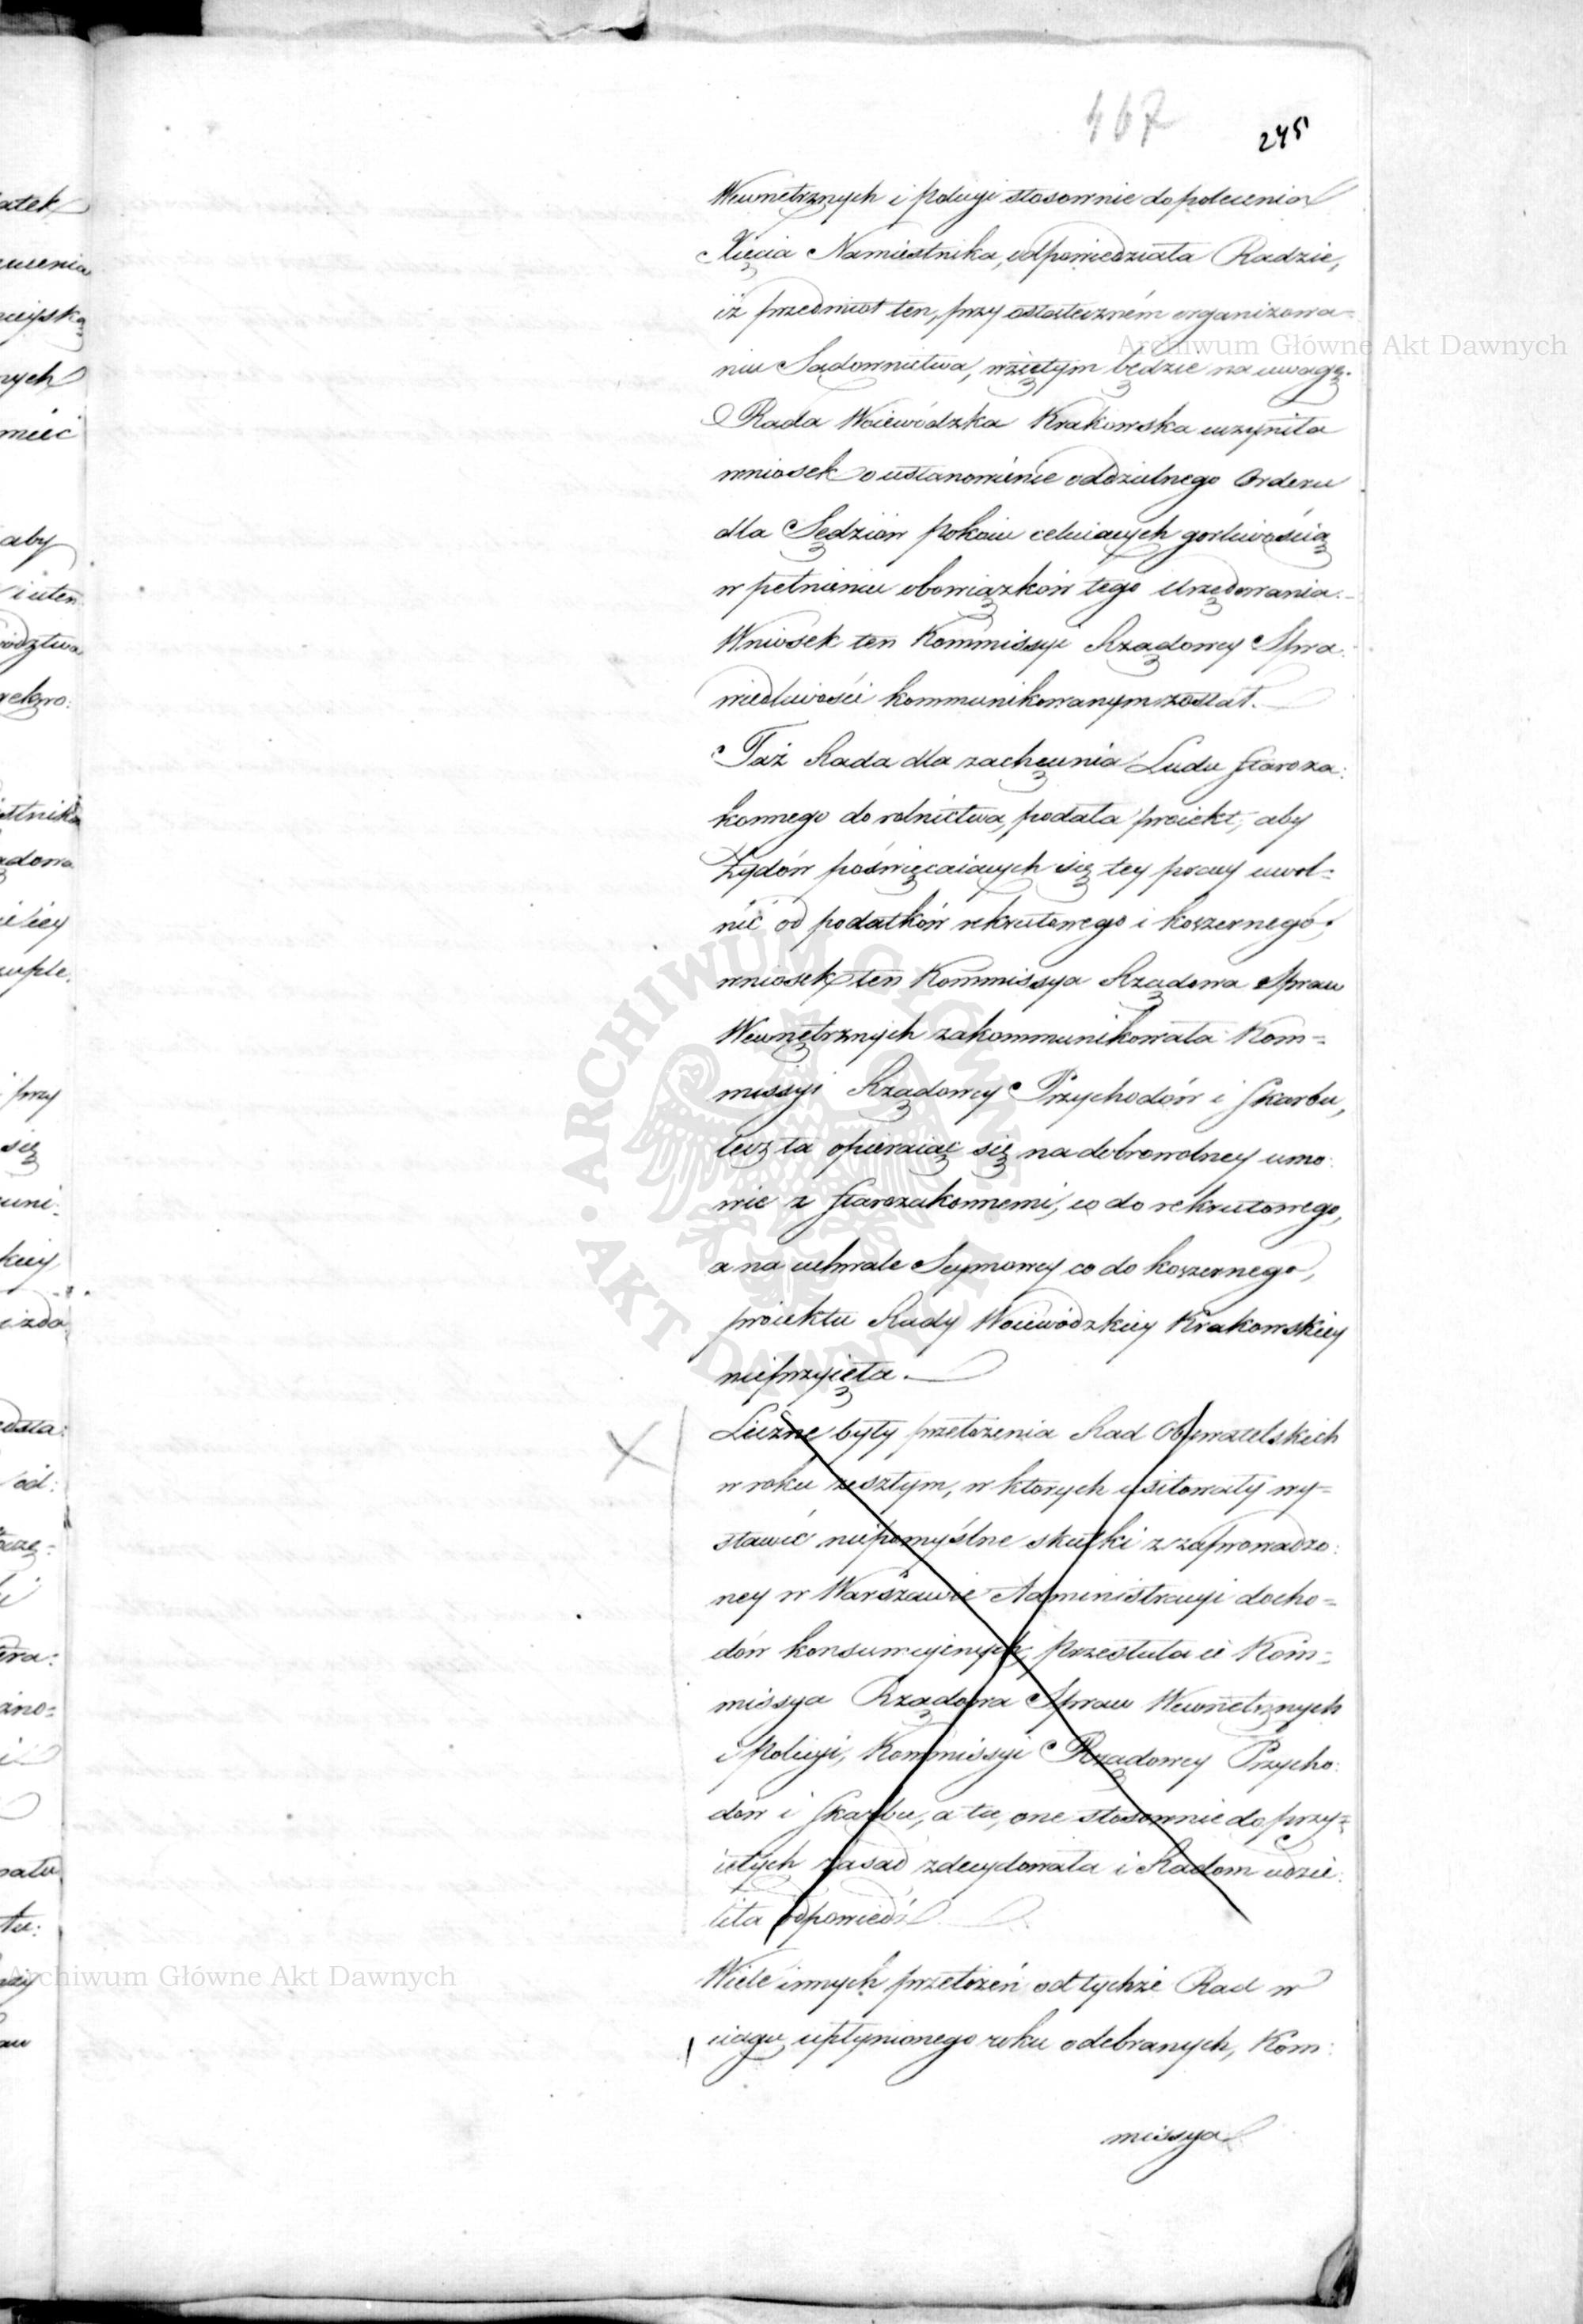 467
245
Wewnętrznych i Policyi stosownie do polecenia
Xięcia Namiestnika, odpowiedziała Radzie,
iż przedmiot ten, przy ostatecznem organizowa=
niu Sądownictwa, wziętym będzie na uwagę.
Rada Woiewódzka Krakowska uczyniła
wniosek o ustanowienie oddzielnego Orderu
dla Sędziów Pokoiu celuiących gorliwością
w pełnieniu obowiązków tego Urzędowania.
Wniosek ten Kommissyi Rządowey Spra:
wiedliwości kommunikowanym został.
Taż Rada dla zachęcenia Ludu Staroza:
konnego do rolnictwa, podała proiekt, aby
Żydów poświęcaiących się tey pracy uwol=
nić od podatków rekrutowego i koszernego;
wniosek ten Kommissya Rządowa Spraw
Wewnętrznych zakommunikowała Kom=
missyi Rządowey Przychodów i Skarbu,
lecz ta opieraiąc się na dobrowolney umo:
wie z Starozakonnemi, co do rekrutowego,
a na uchwale Seymowey co do koszernego,
proiektu Rady Woiewódzkiey Krakowskiey
nieprzyięła.
Liczne były przełożenia Rad Obywatelskich
w roku zeszłym, w ktorych usiłowały wy=
stawić niepomyślne skutki z zaprowadzo:
ney w Warszawie Administracyi docho=
dów konsumcyinych, przesłała ie Kom=
missya Rządowa Spraw Wewnętrznych
i Policyi, Kommissyi Rządowey Przycho:
dów i Skarbu, a ta, one stosownie do przy=
iętych zasad zdecydowała i Radom udzie:
liła odpowiedzi
Wiele innych przełożeń od tychże Rad w
ciągu upłynionego roku odebranych, Kom:
missya
Archiwum Główne Akt Dawnych
Archiwum Główne Akt Dawnych
ARCHIWUM GŁÓWNE AKT DAWNYCH